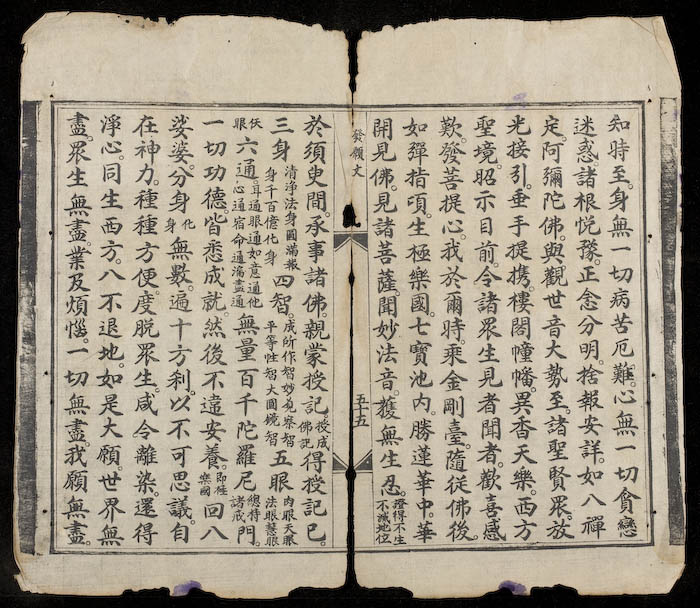 知時至。身無一切病苦厄難。心無一切貪戀
迷惑。諸根悅豫。正念分明。捨報安詳。如入禪
定。阿彌陀佛。與觀世音大勢至。諸聖賢眾。放
光接引。垂手提携。樓閣幢幡。異香天樂。西方
聖境。昭示目前。令諸眾生見者聞者。歡喜感
歎。發菩提心。我於爾時。乘金剛臺。隨從佛後。
如彈指頃。生極樂國。七寶池內。勝蓮華中。華
開見佛。見諸菩薩。聞妙法音。獲無生忍。證得不生不滅地位
發願文 五十五
於須臾間。承事諸佛。親蒙授記。授成佛記得授記已。
三身清淨法身圓滿報身千百億化身四智。成所作智妙觀察智平等性智大圓鏡智五眼肉眼天眼法眼慧眼
佛眼六通耳通眼通如意通他心通宿命通漏盡通無量百千陀羅尼總持諸戒門。
一切功德。皆悉成就。然後不違安養。即極樂國回入
娑婆。分身化身無數。遍十方剎。以不可思議。自
在神力。種種方便。度脫眾生。咸令離染。還得
淨心。同生西方。入不退地。如是大願。世界無
盡。眾生無盡。業及煩惱。一切無盡。我願無盡。